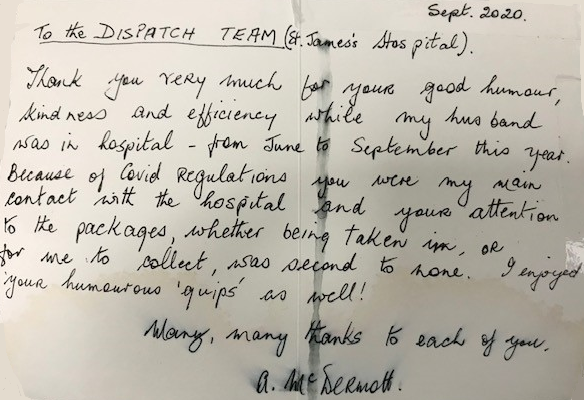 Sept. 2020.
To the DISPATCH TEAM (St. James's Hospital).
Thank you very much for your good humour,
kindness and efficiency while my husband
was in hospital - from June to September this year.
Because of Covid Regulations you were my main
contact with the hospital and your attention
to the packages, whether being taken in, or
for me to collect, was second to none. I enjoyed
your humourous 'quips' as well!
Many, many thanks to each of you.
A. McDermott.